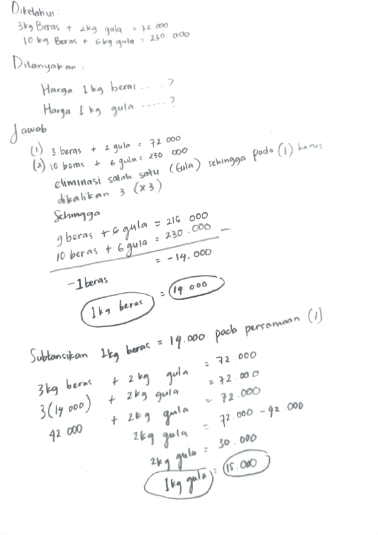 Diketahui:
3kg Beras + 2kg gula = 72 000
10 kg Beras + 6kg gula = 230 000
Ditanyakan:
Harga 1 kg beras .....?
Harga 1 kg gula .....?
Jawab
(1) 3 beras + 2 gula = 72 000
(2) 10 beras + 6 gula = 230 000
eliminasi salah satu (Gula) sehingga pada (1) harus
dikalikan 3 (x3)
Sehingga
9 beras + 6 gula = 216 000
10 beras + 6 gula = 230.000
-1 beras = -14.000
1kg beras = 14 000
Subtansikan 1kg beras = 14.000 pada persamaan (1)
3kg beras + 2kg gula = 72.000
3(14 000) + 2kg gula = 72.000
42 000 + 2kg gula = 72.000
2kg gula = 72.000 - 42 000
2kg gula = 30.000
1kg gula = 15.000